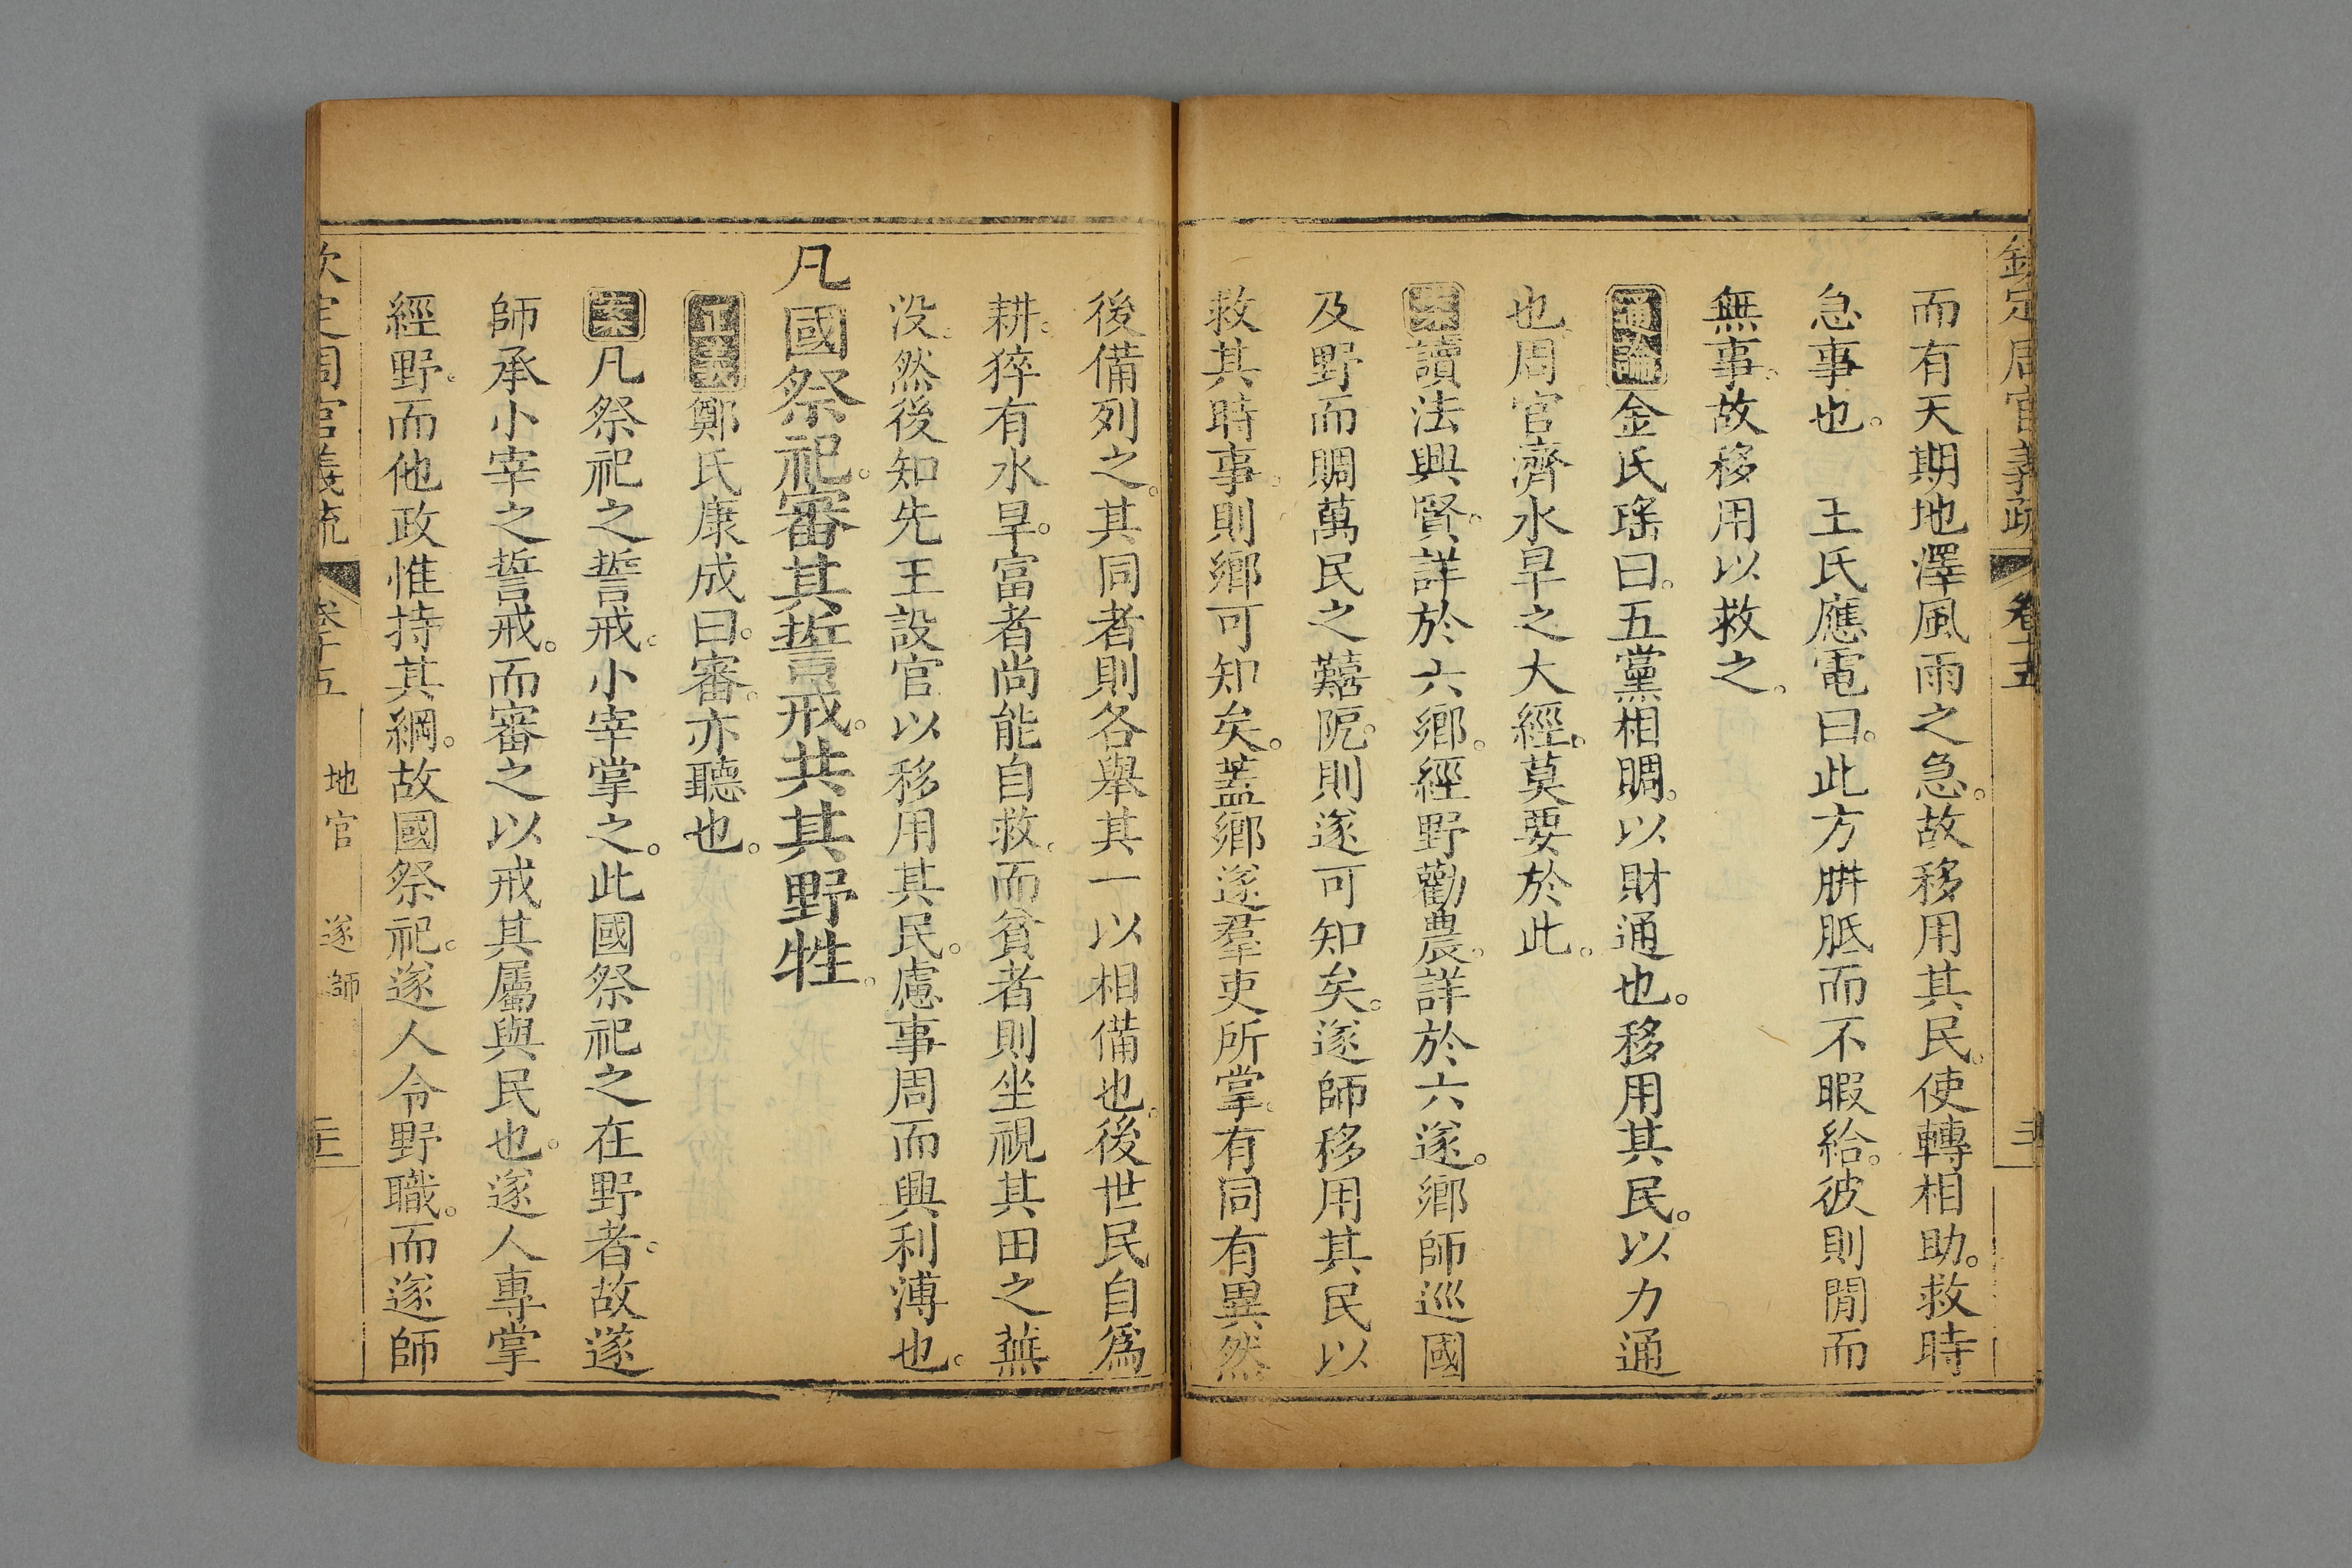 欽定周官義疏 卷十五
而有天期地澤風雨之急。故移用其民。使轉相助。救時
急事也。 王氏應電曰。此方胼胝而不暇給。彼則閒而
無事。故移用以救之。
通論金氏瑤曰。五黨相賙。以財通也。移用其民。以力通
也。周官濟水旱之大經。莫要於此。
案讀法興賢。詳於六鄉。經野勸農。詳於六遂。鄉師巡國
及野而賙萬民之囏阨。則遂可知矣。遂師移用其民以
救其時事。則鄉可知矣。蓋鄉遂羣吏所掌。有同有異。然
後備列之。其同者則各舉其一以相備也。後世民自爲
耕。猝有水旱。富者尚能自救。而貧者則坐視其田之蕪
没。然後知先王設官以移用其民。慮事周而興利溥也。
凡國祭祀。審其誓戒。共其野牲。
正義鄭氏康成曰。審。亦聽也。
案凡祭祀之誓戒。小宰掌之。此國祭祀之在野者。故遂
師承小宰之誓戒。而審之以戒其屬與民也。遂人專掌
經野。而他政惟持其綱。故國祭祀。遂人令野職。而遂師
欽定周官義疏 卷十五 地官 遂師